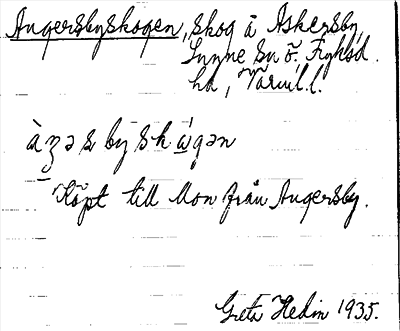 Angersbyskogen, skog å Askersby,
Sunne sn ö. Fryksd.
hd, Värml.l.
àzəsbyskẃgən
Köpt till Mon från Angersby.
Greta Hedin 1935.